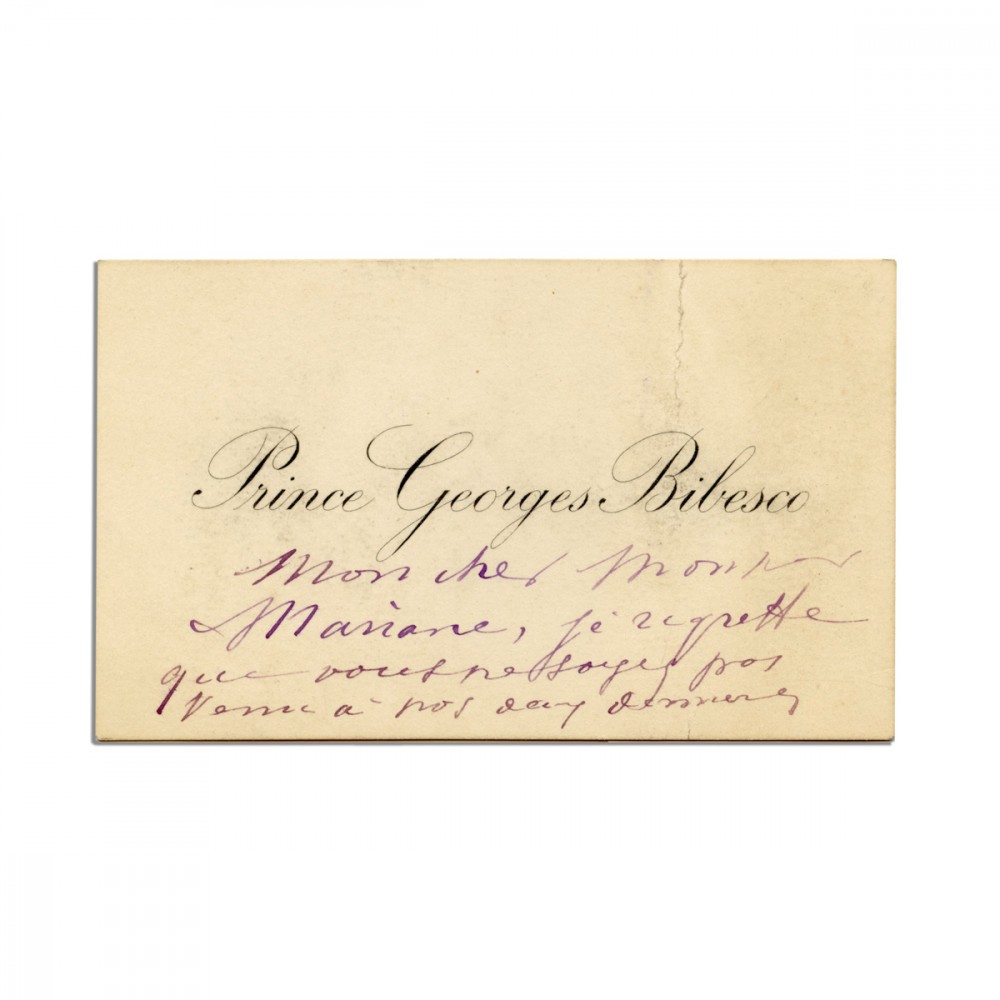 Prince Georges Bibesco
Mon cher Monsieur
Mariane, je regrette
que vous ne soyez pas
venu à nos deux derniers